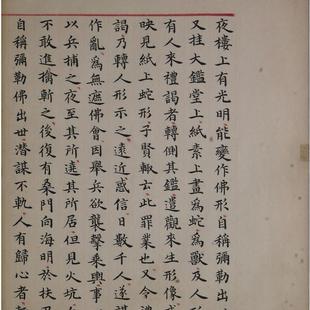 夜樓上有光明能變作佛形自稱彌勒出
又挂大鑑堂上紙素上畫為蛇為獸及人形
有人來禮謁者轉側其鑑遣觀來生形像或
映見紙上蛇形子賢輙云此罪業也又令禮
謁乃轉人形示之遠近惑信日數千人遂謀
作亂為無遮佛會因舉兵欲襲擊乘輿事
以兵捕之夜至其所遶其所居但見火坑
不敢進擒斬之後復有桑門向海明於扶
自稱彌勒佛出世潛謀不軌人有歸心者